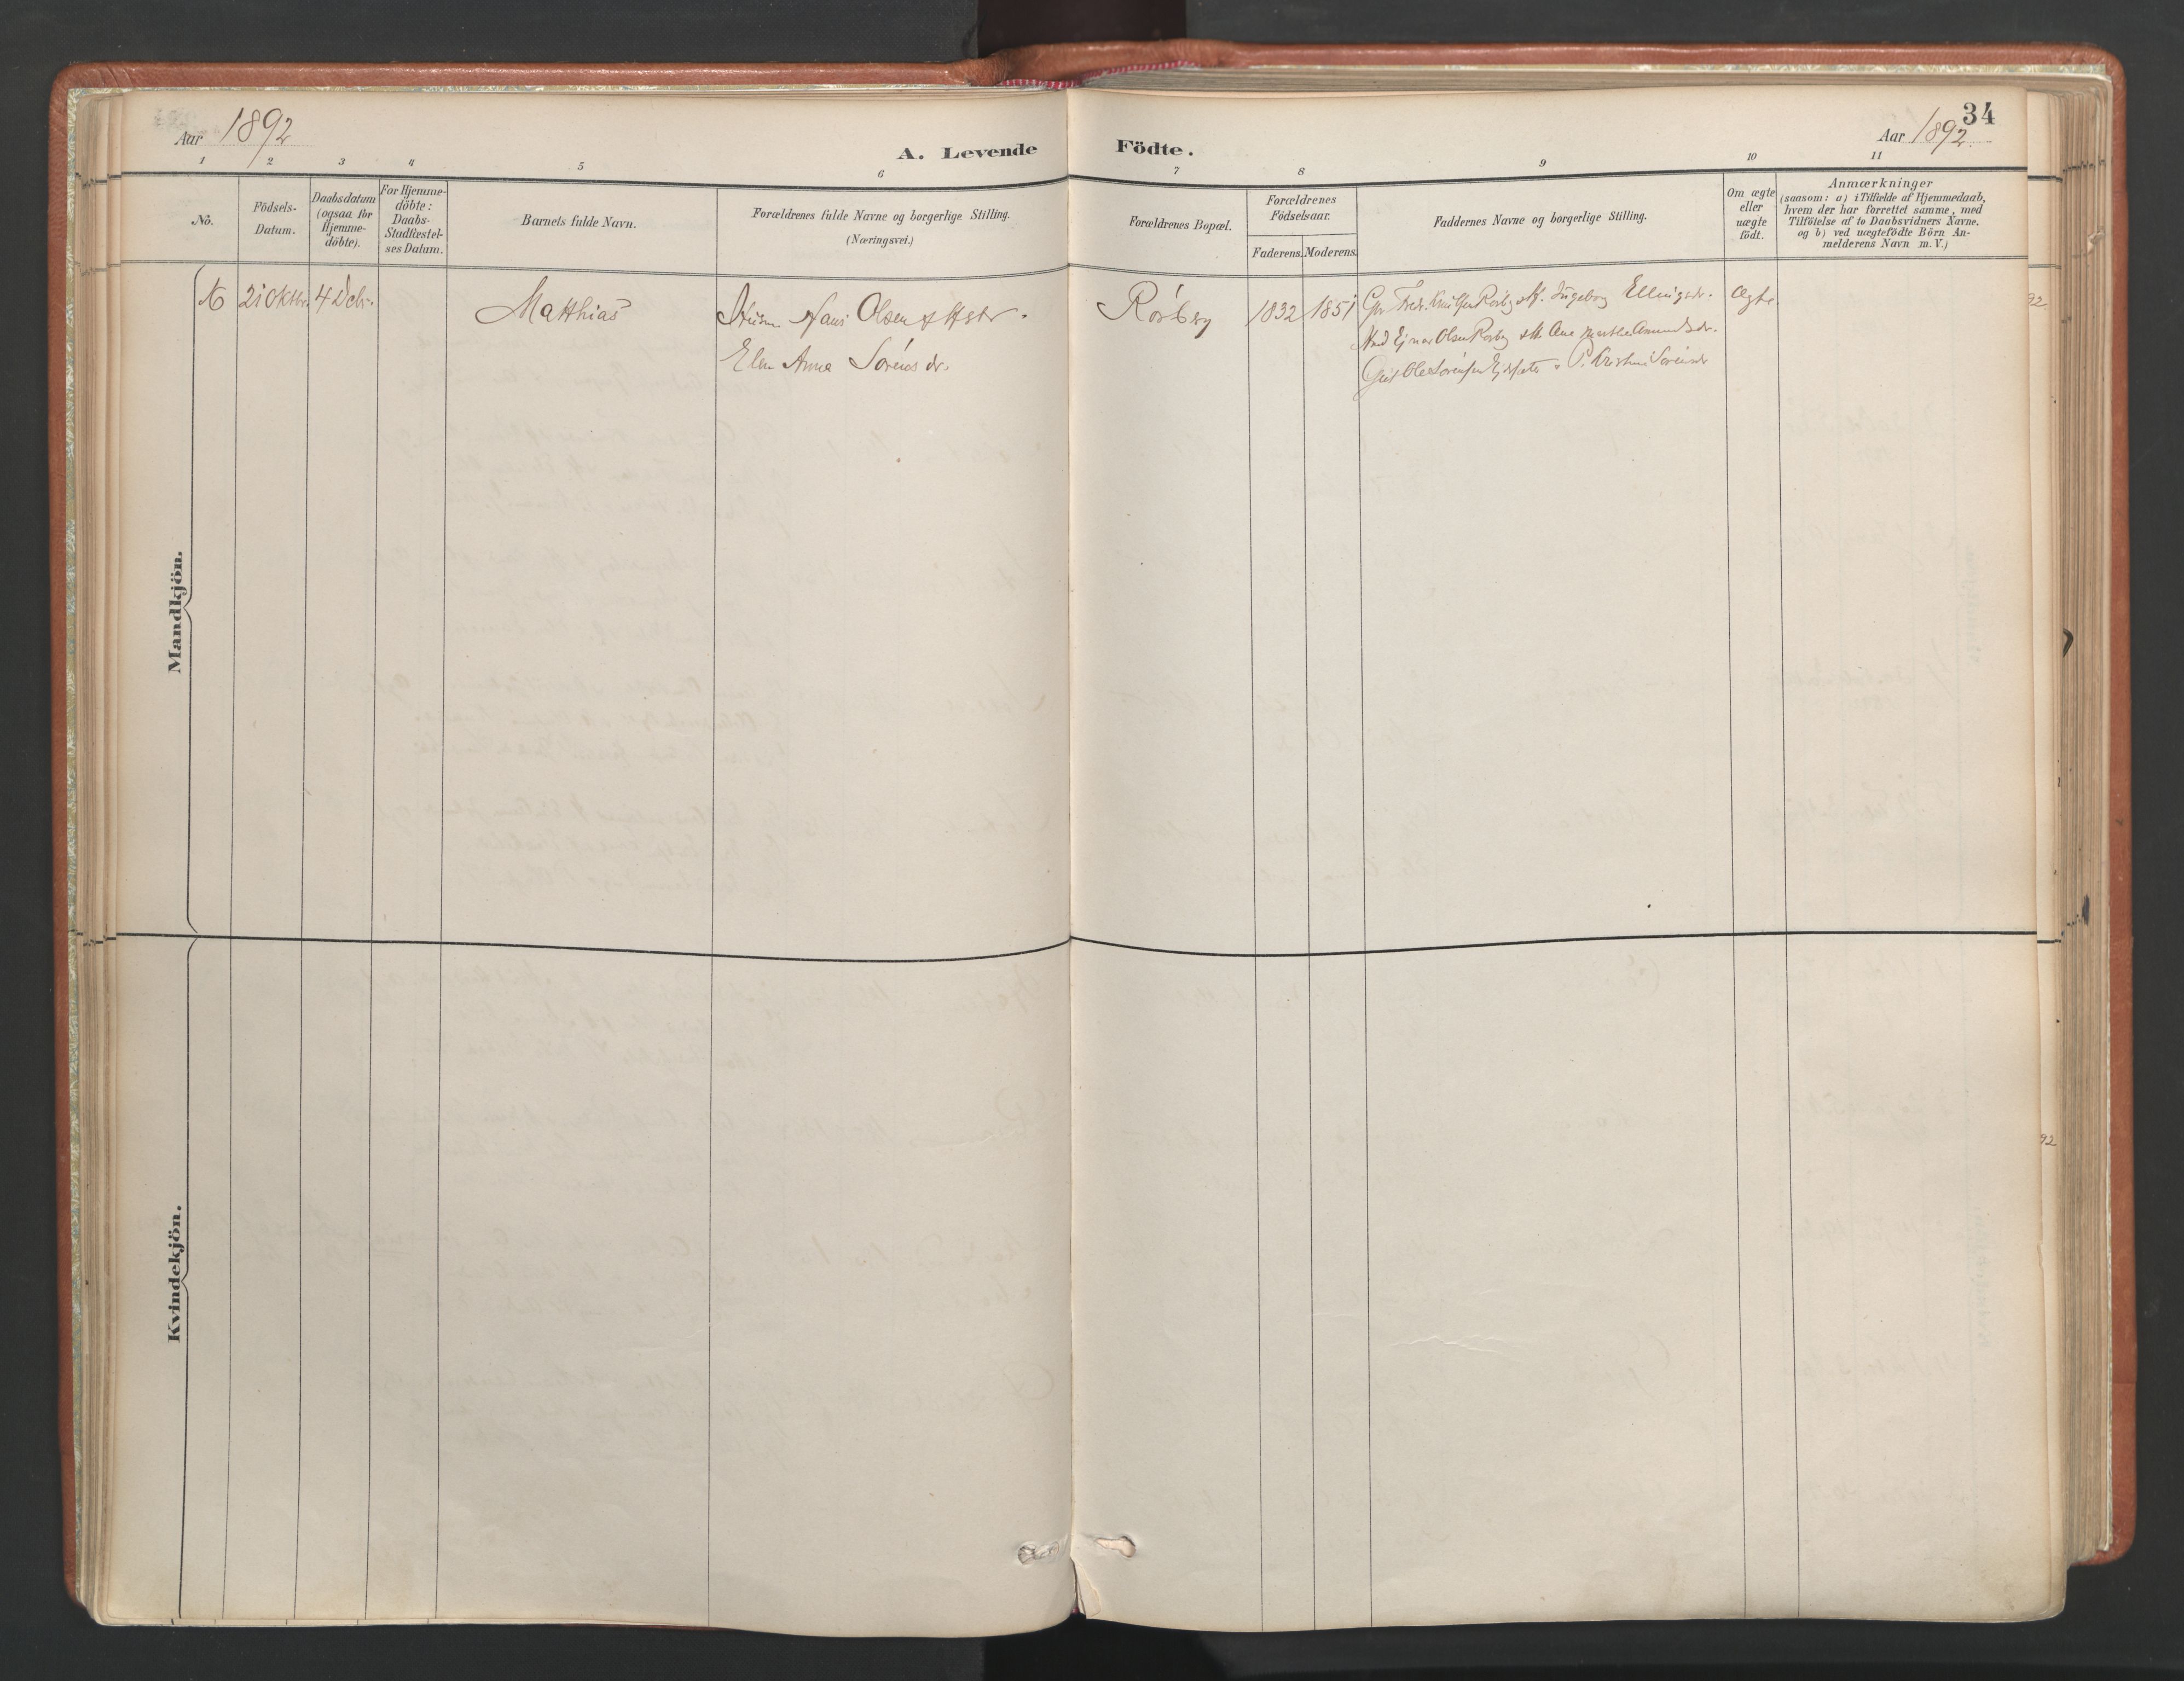 Aar 1892
A. Levende Födte.
34
Aar 1892.
1 2 3 4 5 6 7 8 9 10 11
No.
Födsels-
Datum.
Daabsdatum
(ogsaa for
Hjemme-
döbte).
For Hjemme-
döbte:
Daabs-
Stadfæstel-
ses Datum.
Barnets fulde Navn.
Forældrenes fulde Navne og borgerlige Stilling.
(Næringsvei.)
Forældrenes Bopæl.
Forældrenes
Födselsaar.
Faderens. Moderens.
Faddernes Navne og borgerlige Stilling.
Om ægte
eller
uægte
födt.
Anmærkninger
(saasom: a) i Tilfælde af Hjemmedaab,
hvem der har forrettet samme, med
Tilföielse af to Daabsvidners Navne.
og b) ved uægtefödte Börn An-
melderens Navn m. V.)
Mandkjön.
21 Oktbr. 4 Decbr.
Matthias
Hans Olsen & Hstr.
Elen Anna Sörensdr.
Rösberg
1832 1851
Fredr. Knutsen Ingeborg Ellingsdr.
Ejnar Olsen Ane Marthe Amundsdr.
Ole Sörensen P. Kristine Sörensdr
Ægte.
Kvindekjön.
92
92